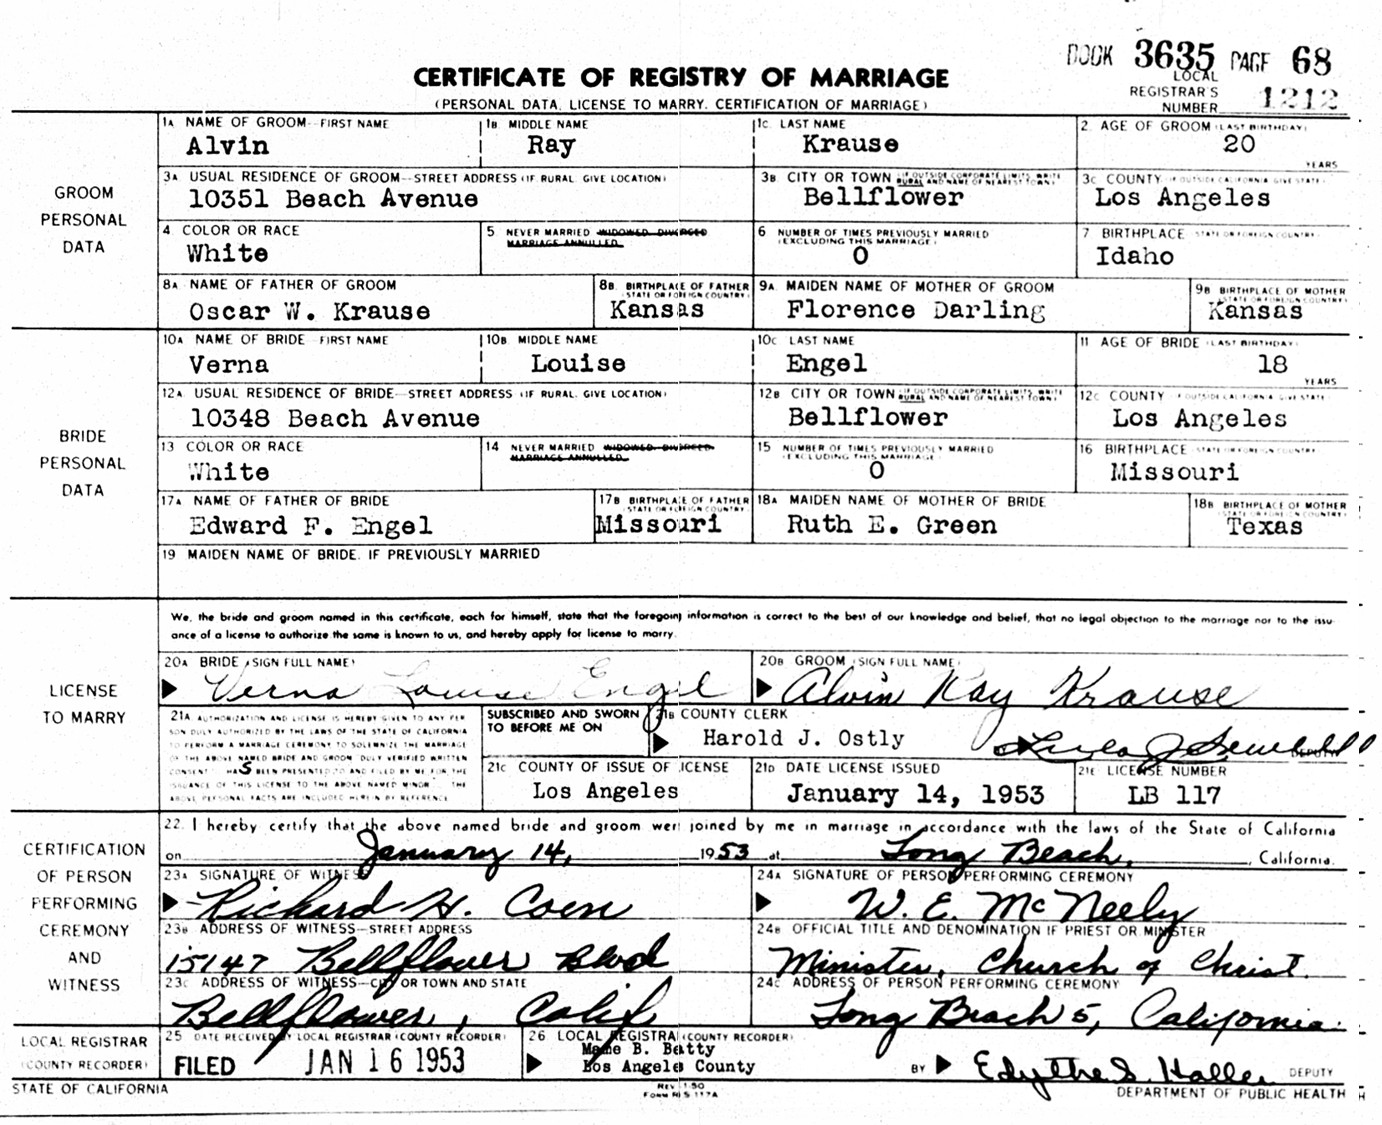 BOOK 3635 PAGE 68
CERTIFICATE OF REGISTRY OF MARRIAGE
(PERSONAL DATA, LICENSE TO MARRY, CERTIFICATION OF MARRIAGE)
LOCAL REGISTRAR'S NUMBER 1212
GROOM PERSONAL DATA
1A NAME OF GROOM—FIRST NAME 1B MIDDLE NAME 1C LAST NAME 2. AGE OF GROOM (LAST BIRTHDAY)
Alvin Ray Krause 20 YEARS
3A USUAL RESIDENCE OF GROOM—STREET ADDRESS (IF RURAL, GIVE LOCATION) 3B CITY OR TOWN (IF OUTSIDE CORPORATE LIMITS, WRITE RURAL AND NAME OF NEAREST TOWN) 3C COUNTY (IF OUTSIDE CALIFORNIA, GIVE STATE)
10351 Beach Avenue Bellflower Los Angeles
4 COLOR OR RACE 5 NEVER MARRIED WIDOWED DIVORCED MARRIAGE ANNULLED 6 NUMBER OF TIMES PREVIOUSLY MARRIED (EXCLUDING THIS MARRIAGE) 7 BIRTHPLACE (STATE OR FOREIGN COUNTRY)
White 0 Idaho
8A NAME OF FATHER OF GROOM 8B BIRTHPLACE OF FATHER (STATE OR FOREIGN COUNTRY) 9A MAIDEN NAME OF MOTHER OF GROOM 9B BIRTHPLACE OF MOTHER (STATE OR FOREIGN COUNTRY)
Oscar W. Krause Kansas Florence Darling Kansas
BRIDE PERSONAL DATA
10A NAME OF BRIDE—FIRST NAME 10B MIDDLE NAME 10C LAST NAME 11 AGE OF BRIDE (LAST BIRTHDAY)
Verna Louise Engel 18 YEARS
12A USUAL RESIDENCE OF BRIDE—STREET ADDRESS (IF RURAL, GIVE LOCATION) 12B CITY OR TOWN (IF OUTSIDE CORPORATE LIMITS, WRITE RURAL AND NAME OF NEAREST TOWN) 12C COUNTY (IF OUTSIDE CALIFORNIA, GIVE STATE)
10348 Beach Avenue Bellflower Los Angeles
13 COLOR OR RACE 14 NEVER MARRIED WIDOWED DIVORCED MARRIAGE ANNULLED 15 NUMBER OF TIMES PREVIOUSLY MARRIED (EXCLUDING THIS MARRIAGE) 16 BIRTHPLACE (STATE OR FOREIGN COUNTRY)
White 0 Missouri
17A NAME OF FATHER OF BRIDE 17B BIRTHPLACE OF FATHER (STATE OR FOREIGN COUNTRY) 18A MAIDEN NAME OF MOTHER OF BRIDE 18B BIRTHPLACE OF MOTHER (STATE OR FOREIGN COUNTRY)
Edward F. Engel Missouri Ruth E. Green Texas
19 MAIDEN NAME OF BRIDE, IF PREVIOUSLY MARRIED
LICENSE TO MARRY
We, the bride and groom named in this certificate, each for himself, state that the foregoing information is correct to the best of our knowledge and belief, that no legal objection to the marriage nor to the issu-
ance of a license to authorize the same is known to us, and hereby apply for license to marry.
20A BRIDE (SIGN FULL NAME) 20B GROOM (SIGN FULL NAME)
Verna Louise Engel Alvin Ray Krause
21A AUTHORIZATION AND LICENSE IS HEREBY GIVEN TO ANY PER-
SON DULY AUTHORIZED BY THE LAWS OF THE STATE OF CALIFORNIA
TO PERFORM A MARRIAGE CEREMONY TO SOLEMNIZE THE MARRIAGE
OF THE ABOVE NAMED BRIDE AND GROOM. DULY VERIFIED WRITTEN
CONSENT HAS BEEN PRESENTED TO AND FILED BY ME FOR THE
ISSUANCE OF THIS LICENSE TO THE ABOVE NAMED MINOR. THE
ABOVE PERSONAL FACTS ARE INCLUDED HEREIN BY REFERENCE
SUBSCRIBED AND SWORN TO BEFORE ME ON
21B COUNTY CLERK
Harold J. Ostly DEPUTY
21C COUNTY OF ISSUE OF LICENSE 21D DATE LICENSE ISSUED 21E LICENSE NUMBER
Los Angeles January 14, 1953 LB 117
CERTIFICATION OF PERSON PERFORMING CEREMONY AND WITNESS
22. I hereby certify that the above named bride and groom were joined by me in marriage in accordance with the laws of the State of California
on January 14, 1953 at Long Beach, California.
23A SIGNATURE OF WITNESS 24A SIGNATURE OF PERSON PERFORMING CEREMONY
Richard H. Coen W. E. McNeely
23B ADDRESS OF WITNESS—STREET ADDRESS 24B OFFICIAL TITLE AND DENOMINATION IF PRIEST OR MINISTER
15147 Bellflower Blvd Minister, Church of Christ.
23C ADDRESS OF WITNESS—CITY OR TOWN AND STATE 24C ADDRESS OF PERSON PERFORMING CEREMONY
Bellflower, Calif Long Beach 5, California.
LOCAL REGISTRAR (COUNTY RECORDER)
25 DATE RECEIVED BY LOCAL REGISTRAR (COUNTY RECORDER) 26 LOCAL REGISTRAR (COUNTY RECORDER)
FILED JAN 16 1953
Mame B. Beatty
Los Angeles County BY Edythe S. Haller DEPUTY
STATE OF CALIFORNIA
REV. 1-50
FORM RS 117A
DEPARTMENT OF PUBLIC HEALTH